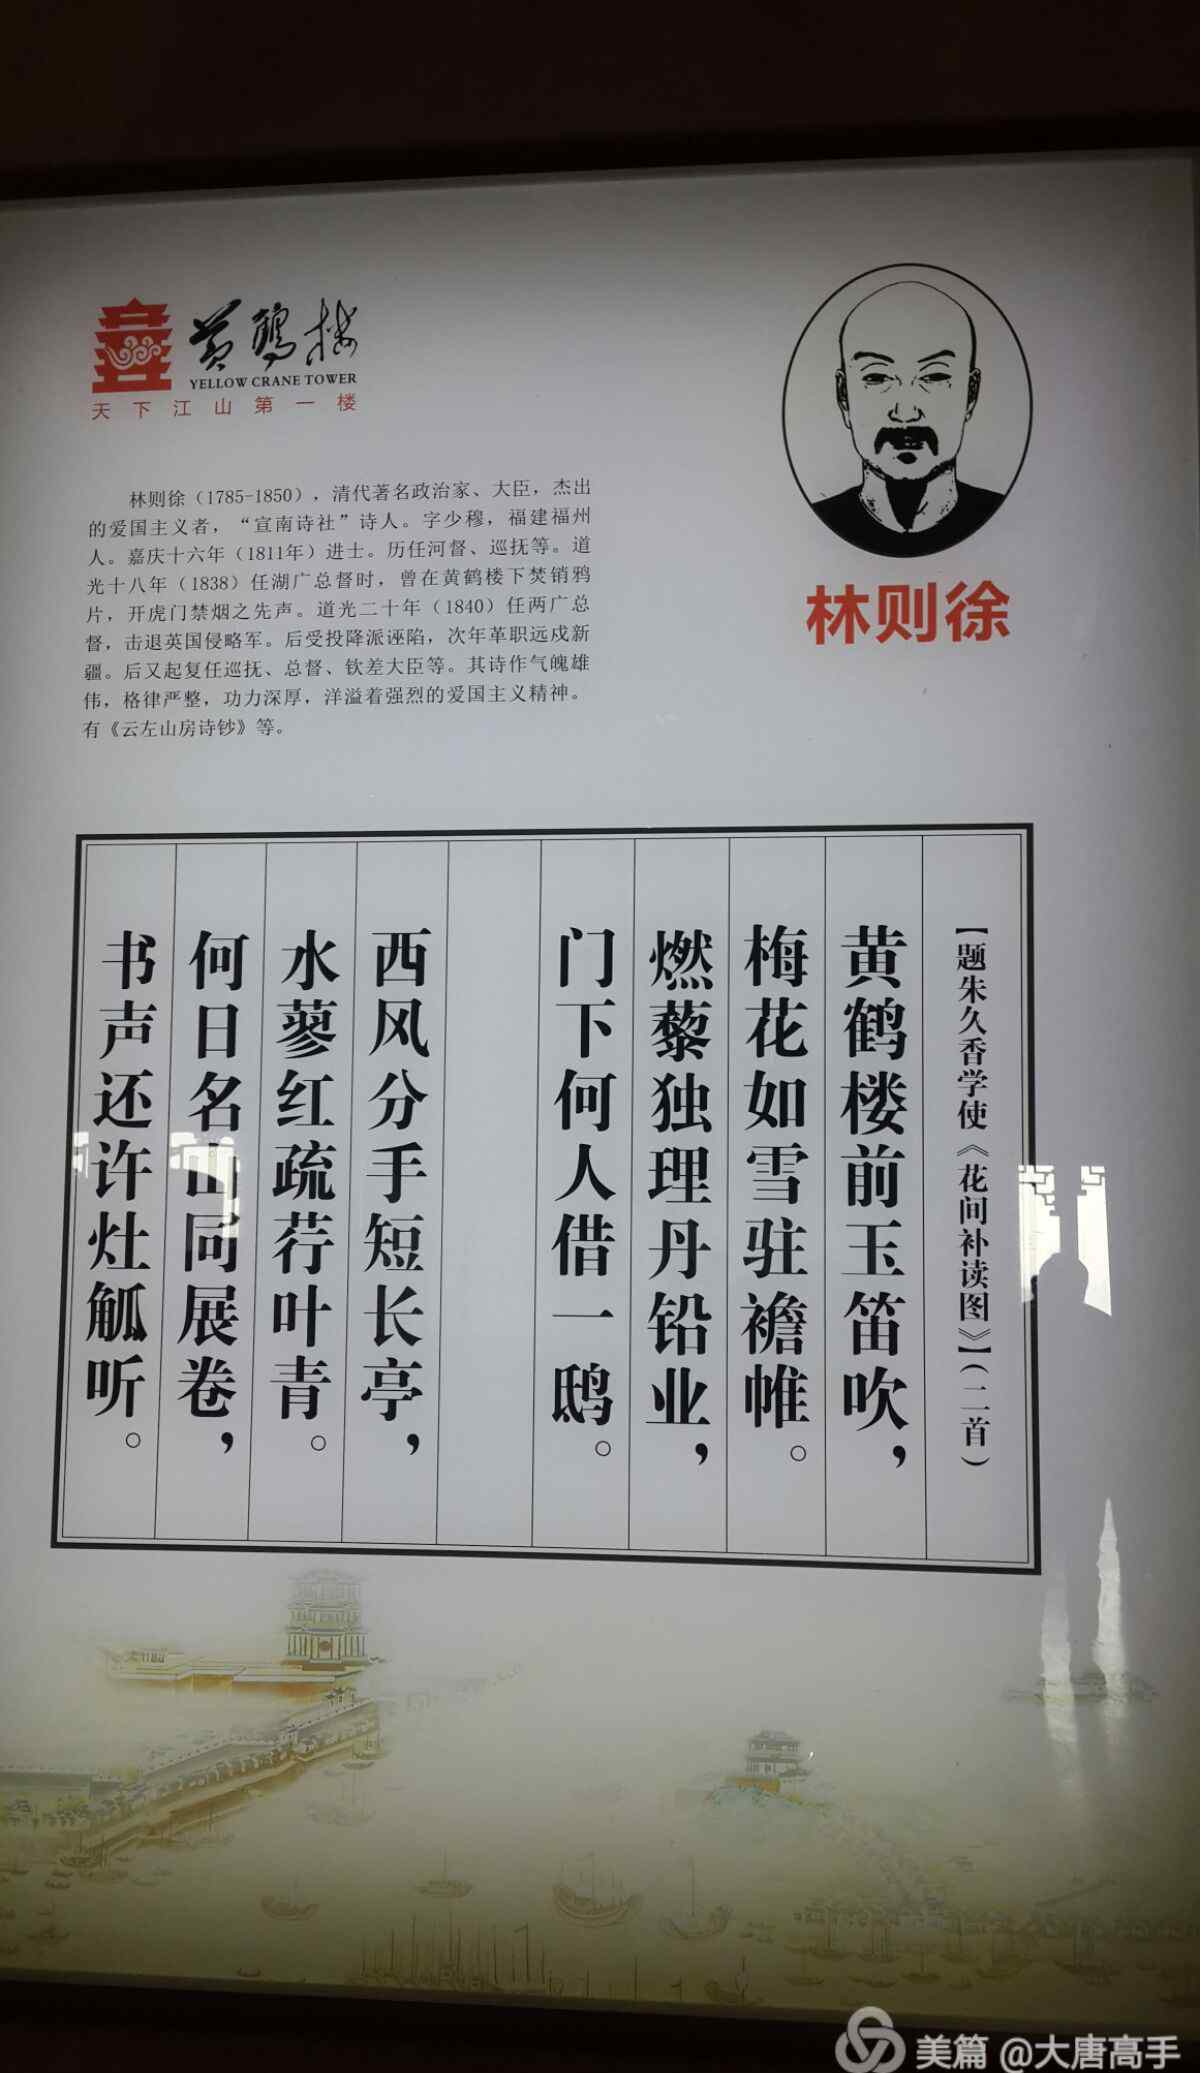 黄鹤楼
YELLOW CRANE TOWER
天下江山第一楼
林则徐
林则徐（1785-1850），清代著名政治家、大臣，杰出
的爱国主义者，“宣南诗社”诗人。字少穆，福建福州
人。嘉庆十六年（1811年）进士。历任河督、巡抚等。道
光十八年（1838）任湖广总督时，曾在黄鹤楼下焚销鸦
片，开虎门禁烟之先声。道光二十年（1840）任两广总
督，击退英国侵略军。后受投降派诬陷，次年革职远戍新
疆。后又起复任巡抚、总督、钦差大臣等。其诗作气魄雄
伟，格律严整，功力深厚，洋溢着强烈的爱国主义精神。
有《云左山房诗钞》等。
【题朱久香学使《花间补读图》】（二首）
黄鹤楼前玉笛吹，
梅花如雪驻襜帷。
燃藜独理丹铅业，
门下何人借一鸱。
西风分手短长亭，
水蓼红疏荇叶青。
何日名山同展卷，
书声还许灶觚听。
美篇 @大唐高手